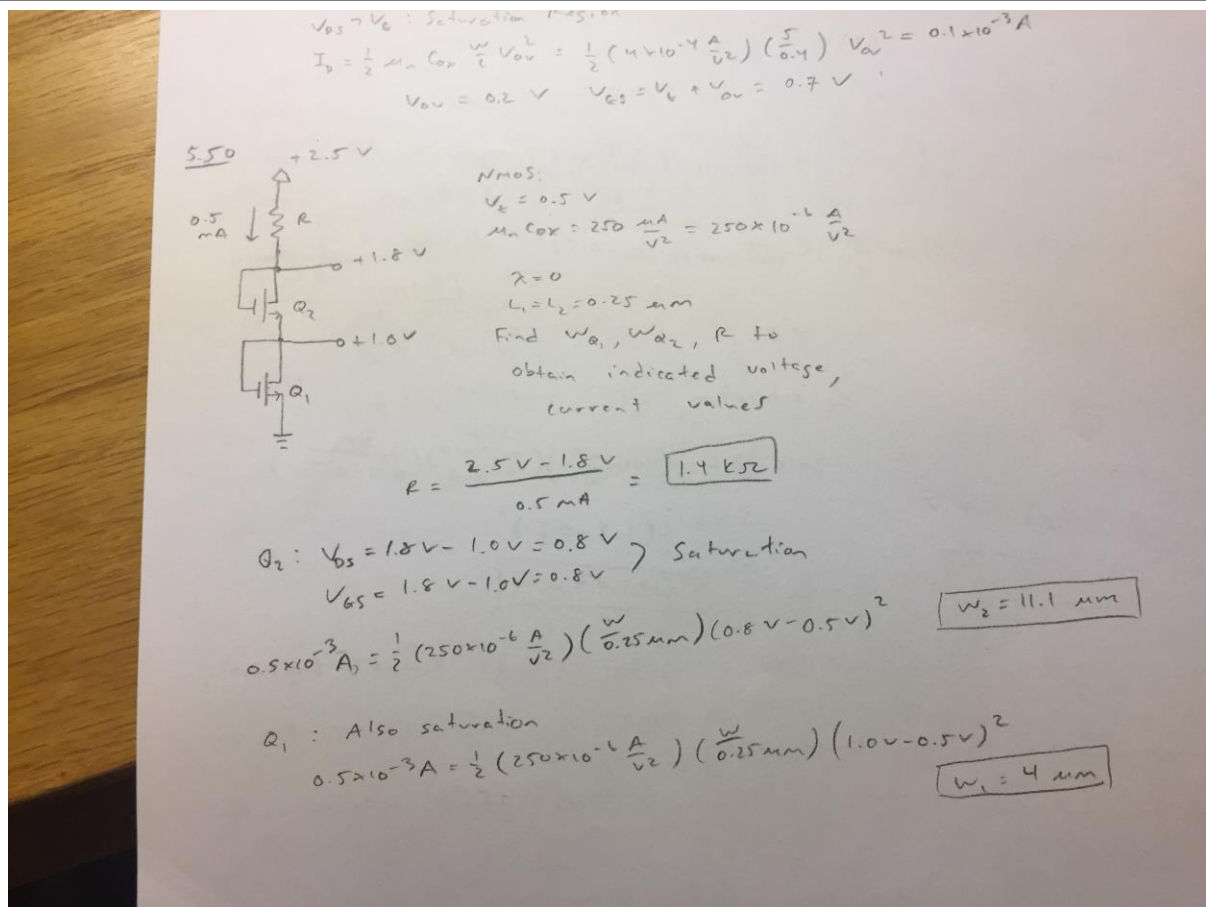 V_DS > V_t : Saturation Region
I_D = 1/2 μn Cox W/L V_OV² = 1/2 (4×10⁻⁴ A/V²) (5/0.4) V_OV² = 0.1×10⁻³ A
V_OV = 0.2 V V_GS = V_t + V_OV = 0.7 V
5.50
+2.5 V
0.5 mA
R
+1.8 V
Q₂
+1.0 V
Q₁
NMOS:
V_t = 0.5 V
μn Cox = 250 μA/V² = 250×10⁻⁶ A/V²
λ=0
L₁=L₂=0.25 μm
Find W_Q₁, W_Q₂, R to
obtain indicated voltage,
current values
R = (2.5 V - 1.8 V)/(0.5 mA) = 1.4 kΩ
Q₂ : V_DS = 1.8 V - 1.0 V = 0.8 V
V_GS = 1.8 V - 1.0 V = 0.8 V
} Saturation
0.5×10⁻³ A = 1/2 (250×10⁻⁶ A/V²) (W/0.25 μm) (0.8 V - 0.5 V)²
W₂ = 11.1 μm
Q₁ : Also saturation
0.5×10⁻³ A = 1/2 (250×10⁻⁶ A/V²) (W/0.25 μm) (1.0 V - 0.5 V)²
W₁ = 4 μm